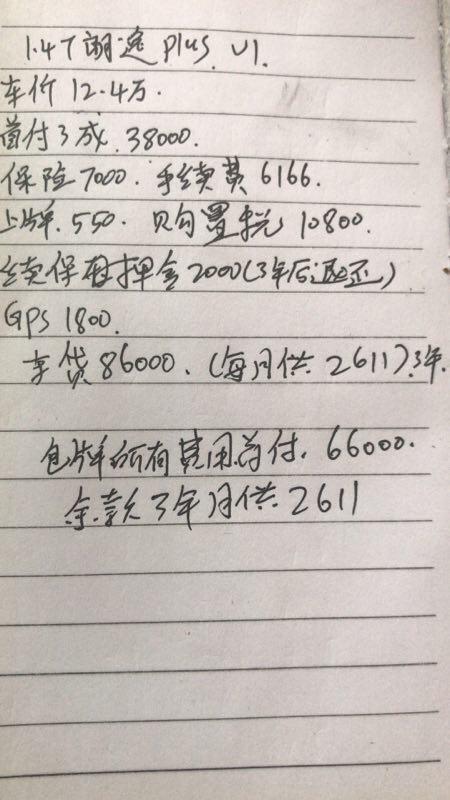 1.4T 朗逸 plus. U1.
车价 12.4万.
首付3成. 38000.
保险7000. 手续费 6166.
上牌. 550. 购置税 10800.
续保押金2000(3年后退还)
GPS 1800.
车贷86000. (每月供 2611).3年.
包牌所有费用首付. 66000.
余款3年月供2611